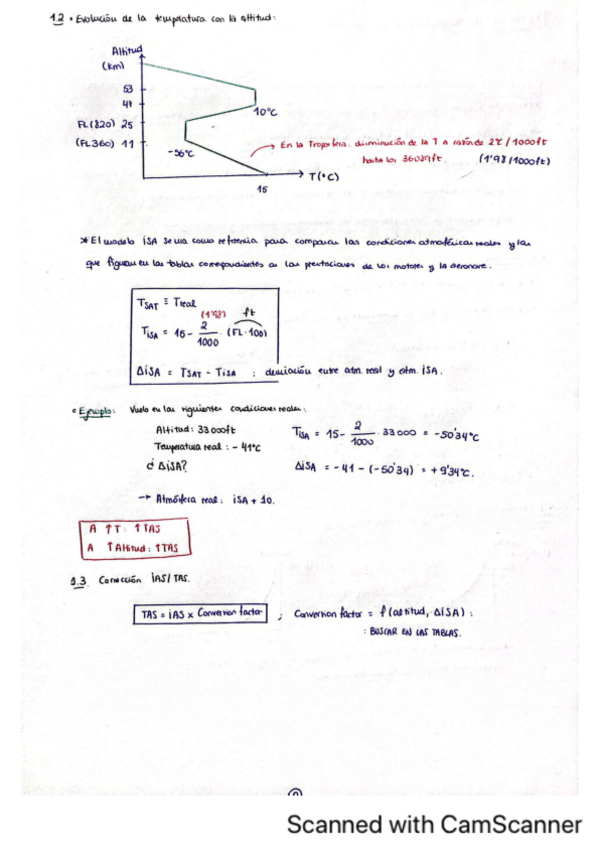 1.2 • Evolución de la temperatura con la altitud:
Altitud
(km)
53
47
10°C
FL(820) 25
(FL360) 11
-56°C
→ En la Troposfera: disminución de la T a razón de 2°C/1000ft
hasta los 36089ft. (1'98/1000ft)
T(°C)
15
* El modelo ISA se usa como referencia para comparar las condiciones atmosféricas reales y las
que figuran en las tablas correspondientes a las prestaciones de los motores y la aeronave.
TSAT ≡ Treal
(1'98) ft
TISA = 15 - 2/1000 · (FL·100)
ΔISA = TSAT - TISA : desviación entre atm. real y atm. ISA.
• Ejemplo: Vuelo en las siguientes condiciones reales:
Altitud: 33000ft
TISA = 15 - 2/1000 · 33000 = -50'34°C
Temperatura real: -41°C
¿ΔISA?
ΔISA = -41 - (-50'34) = +9'34°C.
→ Atmósfera real: ISA + 10.
A ↑T: ↑TAS
A ↑Altitud: ↑TAS
1.3 Corrección IAS/TAS.
TAS = IAS x Conversion factor ; Conversion factor = f(altitud, ΔISA) :
: BUSCAR EN LAS TABLAS.
Scanned with CamScanner